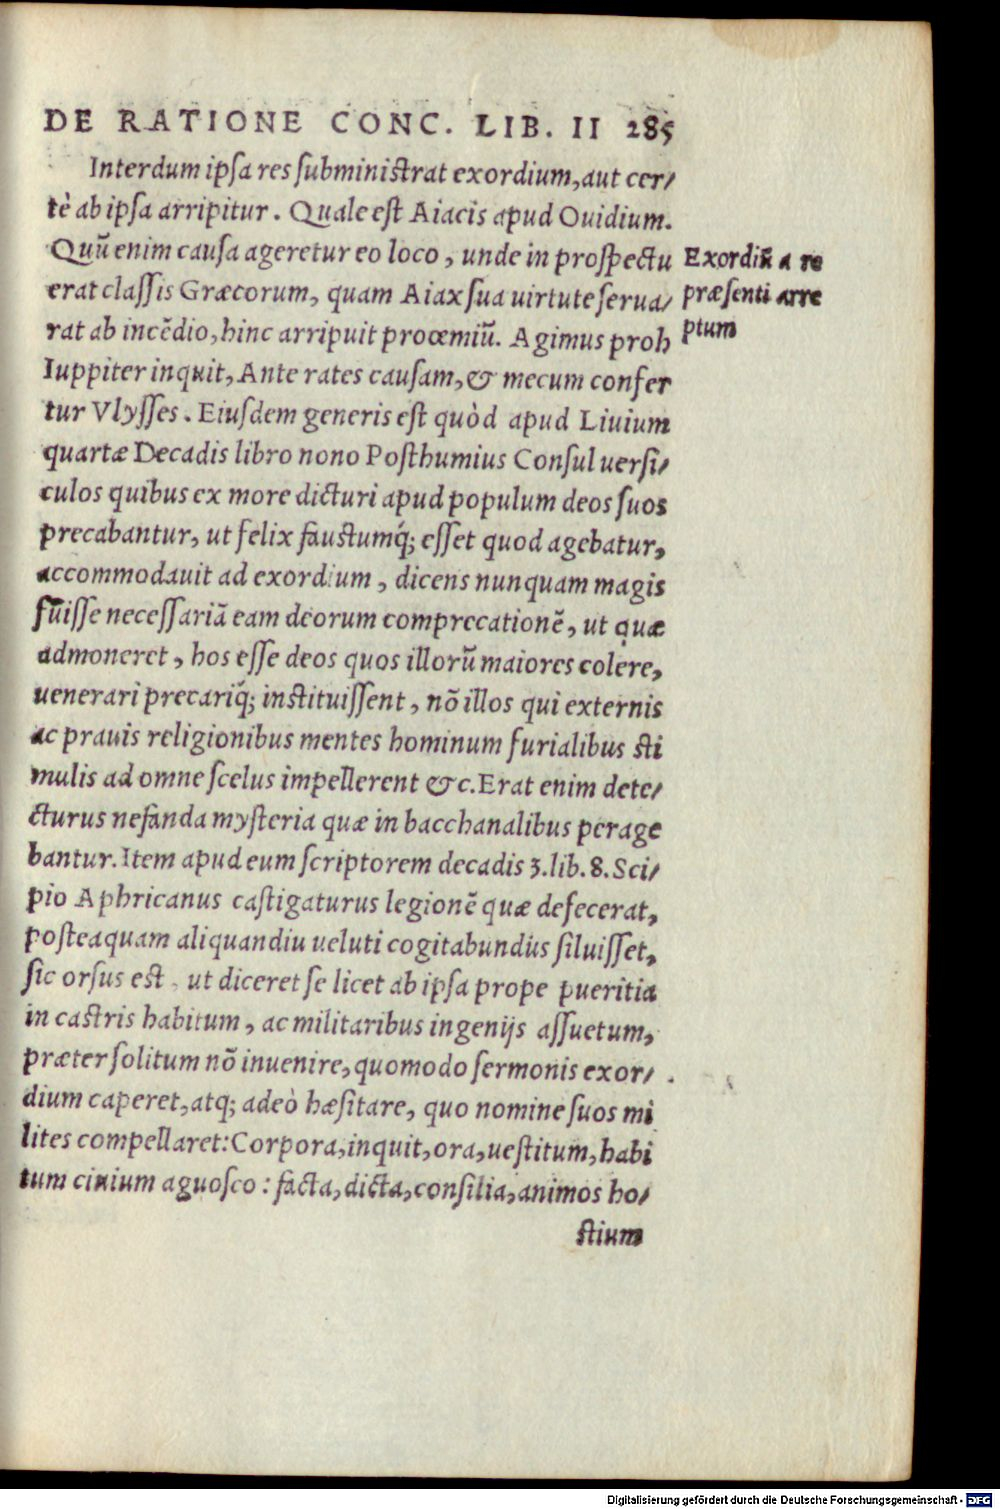 DE RATIONE CONC. LIB. II 285
Interdum ipsa res subministrat exordium, aut cer/
tè ab ipsa arripitur. Quale est Aiacis apud Ouidium.
Quū enim causa ageretur eo loco, unde in prospectu
erat classis Græcorum, quam Aiax sua uirtute serua/
rat ab incēdio, hinc arripuit proœmiū. Agimus proh
Iuppiter inquit, Ante rates causam, & mecum confer
tur Vlysses. Eiusdem generis est quòd apud Liuium
quartæ Decadis libro nono Posthumius Consul uersi/
culos quibus ex more dicturi apud populum deos suos
precabantur, ut felix faustumq́; esset quod agebatur,
accommodauit ad exordium, dicens nunquam magis
fuisse necessariā eam deorum comprecationē, ut quæ
admoneret, hos esse deos quos illorū maiores colere,
uenerari precariq́; instituissent, nō illos qui externis
ac prauis religionibus mentes hominum furialibus sti
mulis ad omne scelus impellerent &c. Erat enim dete/
cturus nefanda mysteria quæ in bacchanalibus perage
bantur. Item apud eum scriptorem decadis 3. lib. 8. Sci/
pio Aphricanus castigaturus legionē quæ defecerat,
posteaquam aliquandiu ueluti cogitabundus siluisset,
sic orsus est, ut diceret se licet ab ipsa prope pueritia
in castris habitum, ac militaribus ingenijs assuetum,
præter solitum nō inuenire, quomodo sermonis exor/
dium caperet, atq; adeò hæsitare, quo nomine suos mi
lites compellaret: Corpora, inquit, ora, uestitum, habi
tum ciuium aguosco: facta, dicta, consilia, animos ho/
stium
Exordiū a re
præsenti arre
ptum
Digitalisierung gefördert durch die Deutsche Forschungsgemeinschaft - DFG